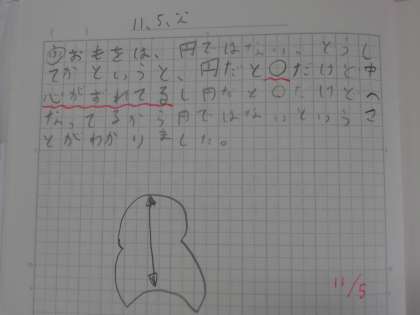 11.5.z
おもさは、円ではない。どうし
てかというと、円だと○だけど中
心がずれてるし円だと○だけどへ
なってるから円ではないというこ
とがわかりました。
11/5